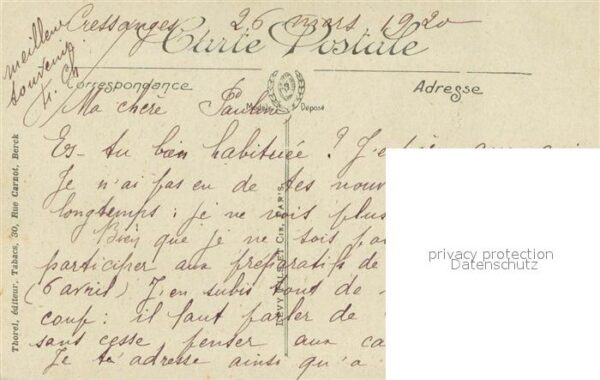 Cressanges 26 mars 1920
Carte Postale
meilleur
souvenir
F. Ch
Correspondance
Adresse
Modèle Déposé
Ma chère Pauline
Es-tu bien habituée ? J'es
Je n'ai pas eu de tes nouv
longtemps : je ne vois plus
Bien que je ne sois pas
participer aux préparatifs de
(6 avril) J'en subis tout de
coup : il faut parler de
sans cesse penser aux ca
Je t'adresse ainsi qu'à
Thorel, éditeur, Tabacs, 30, Rue Carnot, Berck
LÉVY CIE, PARIS
privacy protection
Datenschutz